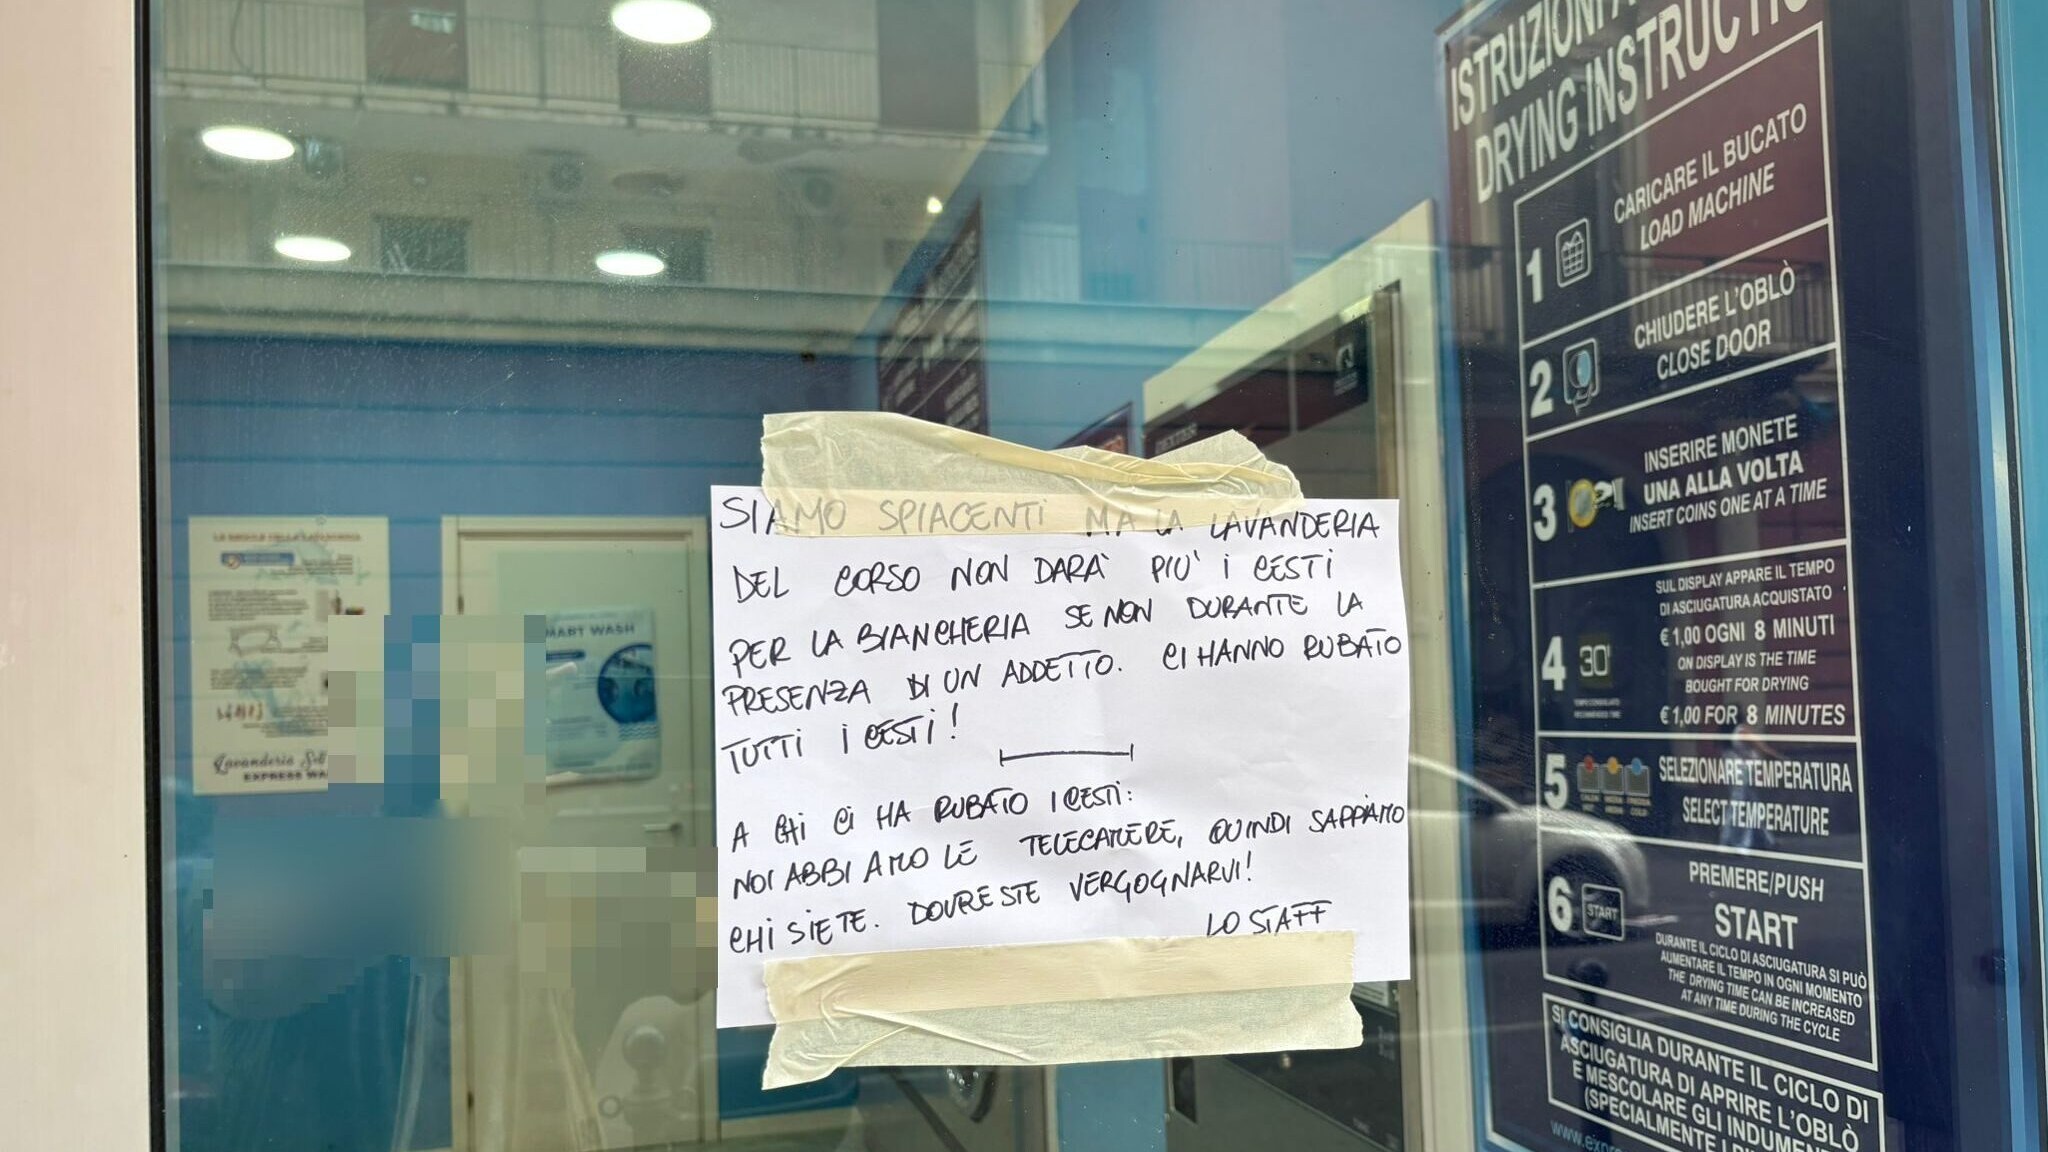 SIAMO SPIACENTI MA LA LAVANDERIA
DEL CORSO NON DARÀ PIU' I CESTI
PER LA BIANCHERIA SE NON DURANTE LA
PRESENZA DI UN ADDETTO. CI HANNO RUBATO
TUTTI I CESTI!
A CHI CI HA RUBATO I CESTI:
NOI ABBIAMO LE TELECAMERE, QUINDI SAPPIAMO
CHI SIETE. DOVRESTE VERGOGNARVI!
LO STAFF
ISTRUZIONI
DRYING INSTRUCTIO
1
CARICARE IL BUCATO
LOAD MACHINE
2
CHIUDERE L'OBLÒ
CLOSE DOOR
3
INSERIRE MONETE
UNA ALLA VOLTA
INSERT COINS ONE AT A TIME
4
30'
SUL DISPLAY APPARE IL TEMPO
DI ASCIUGATURA ACQUISTATO
€ 1,00 OGNI 8 MINUTI
ON DISPLAY IS THE TIME
BOUGHT FOR DRYING
€ 1,00 FOR 8 MINUTES
5
SELEZIONARE TEMPERATURA
SELECT TEMPERATURE
6
START
PREMERE/PUSH
START
DURANTE IL CICLO DI ASCIUGATURA SI PUÒ
AUMENTARE IL TEMPO IN OGNI MOMENTO
THE DRYING TIME CAN BE INCREASED
AT ANY TIME DURING THE CYCLE
SI CONSIGLIA DURANTE IL CICLO DI
ASCIUGATURA DI APRIRE L'OBLÒ
E MESCOLARE GLI INDUMEN
(SPECIALMENTE I
DEXTER
MART WASH
Lavanderia
EXPRESS WA